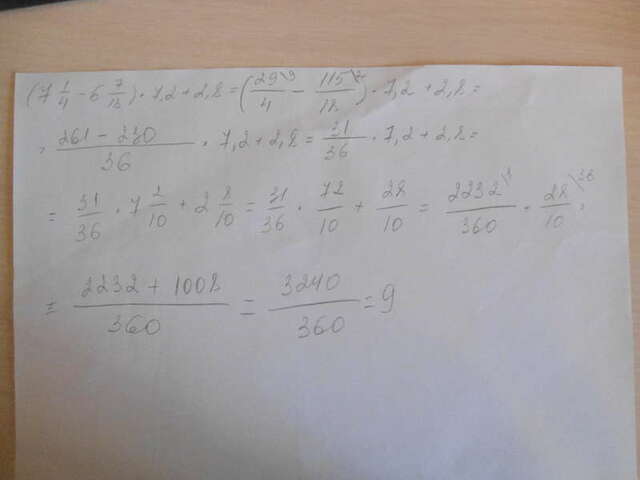 (7 1/4 - 6 7/18) · 7,2 + 2,8 = (29\9/4 - 115\2/18) · 7,2 + 2,8 =
= 261 - 230/36 · 7,2 + 2,8 = 31/36 · 7,2 + 2,8 =
= 31/36 · 7 2/10 + 2 8/10 = 31/36 · 72/10 + 28/10 = 2232\1/360 + 28\36/10 =
= 2232 + 1008/360 = 3240/360 = 9